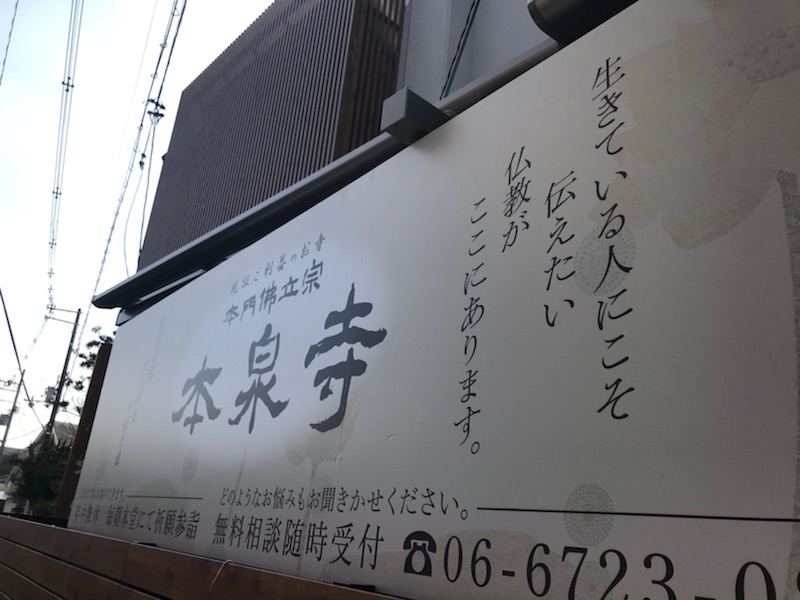 生きている人にこそ
伝えたい
仏教が
ここにあります。
現証ご利益のお寺
本門佛立宗
本泉寺
どのようなお悩みもお聞かせください。
毎朝本堂にて祈願参詣
無料相談随時受付
☎06-6723-0